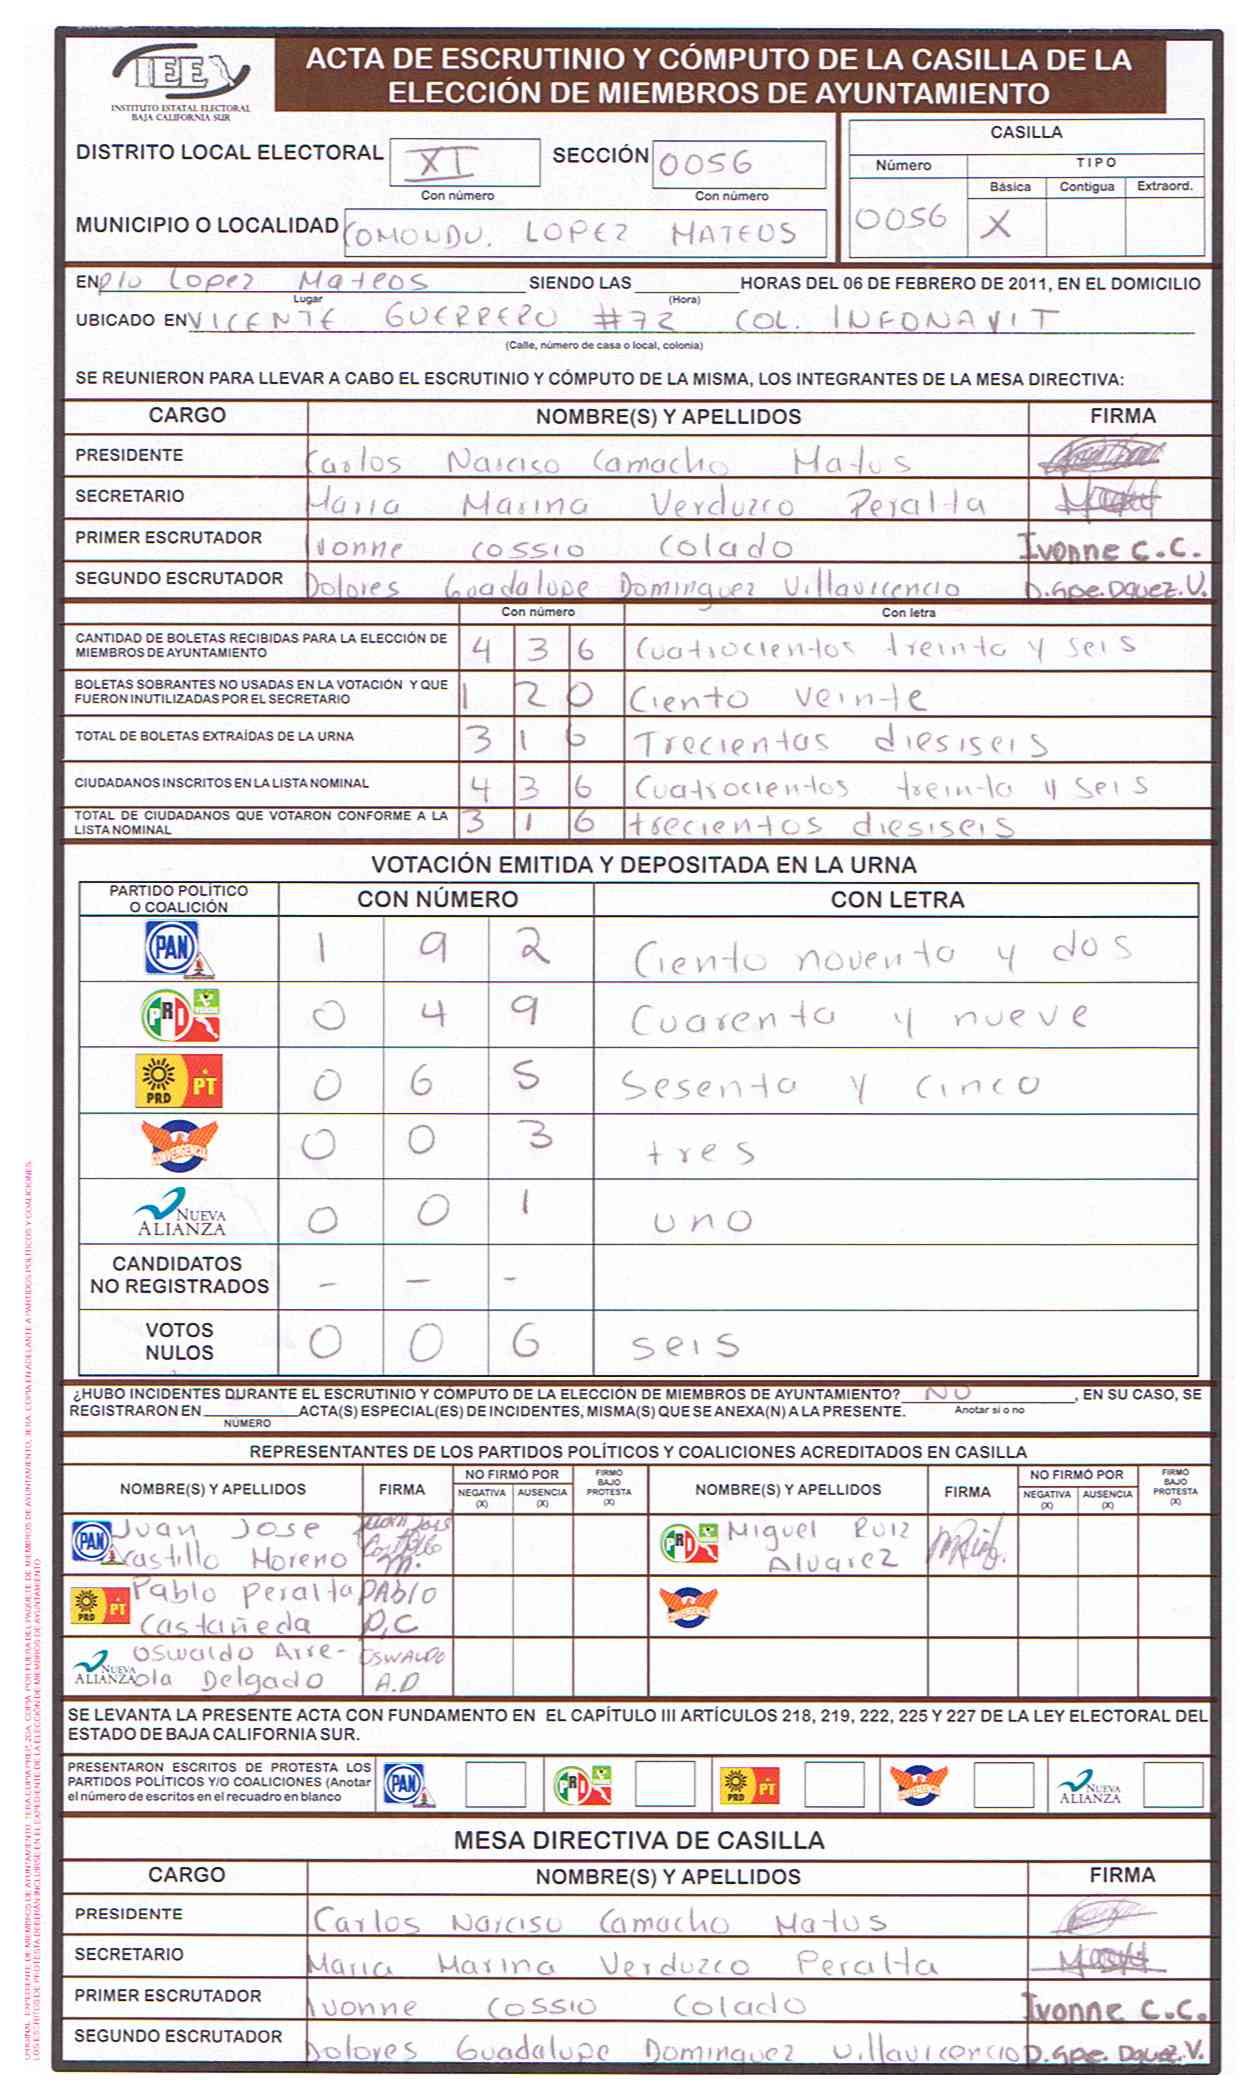 IEE
INSTITUTO ESTATAL ELECTORAL
BAJA CALIFORNIA SUR
ACTA DE ESCRUTINIO Y CÓMPUTO DE LA CASILLA DE LA
ELECCIÓN DE MIEMBROS DE AYUNTAMIENTO
DISTRITO LOCAL ELECTORAL XI SECCIÓN 0056
Con número Con número
MUNICIPIO O LOCALIDAD COMONDU. LOPEZ MATEOS
CASILLA
Número TIPO
Básica Contigua Extraord.
0056 X
EN pto Lopez Mateos SIENDO LAS HORAS DEL 06 DE FEBRERO DE 2011, EN EL DOMICILIO
Lugar (Hora)
UBICADO EN VICENTE GUERRERO #72 COL. INFONAVIT
(Calle, número de casa o local, colonia)
SE REUNIERON PARA LLEVAR A CABO EL ESCRUTINIO Y CÓMPUTO DE LA MISMA, LOS INTEGRANTES DE LA MESA DIRECTIVA:
CARGO NOMBRE(S) Y APELLIDOS FIRMA
PRESIDENTE Carlos Narciso Camacho Matus
SECRETARIO Maria Marina Verduzco Peralta
PRIMER ESCRUTADOR Ivonne Cossio Colado Ivonne C.C.
SEGUNDO ESCRUTADOR Dolores Guadalupe Dominguez Villavicencio D.Gpe.Dguez.V.
Con número Con letra
CANTIDAD DE BOLETAS RECIBIDAS PARA LA ELECCIÓN DE
MIEMBROS DE AYUNTAMIENTO 4 3 6 Cuatrocientos treinta y seis
BOLETAS SOBRANTES NO USADAS EN LA VOTACIÓN Y QUE
FUERON INUTILIZADAS POR EL SECRETARIO 1 2 0 Ciento veinte
TOTAL DE BOLETAS EXTRAÍDAS DE LA URNA 3 1 6 Trecientas diesiseis
CIUDADANOS INSCRITOS EN LA LISTA NOMINAL 4 3 6 Cuatrocientos treinta y seis
TOTAL DE CIUDADANOS QUE VOTARON CONFORME A LA
LISTA NOMINAL 3 1 6 trecientos diesiseis
VOTACIÓN EMITIDA Y DEPOSITADA EN LA URNA
PARTIDO POLÍTICO
O COALICIÓN CON NÚMERO CON LETRA
PAN 1 9 2 Ciento noventa y dos
PRI 0 4 9 Cuarenta y nueve
PRD PT 0 6 5 Sesenta y cinco
CONVERGENCIA 0 0 3 tres
NUEVA ALIANZA 0 0 1 uno
CANDIDATOS
NO REGISTRADOS - - -
VOTOS
NULOS 0 0 6 seis
¿HUBO INCIDENTES DURANTE EL ESCRUTINIO Y CÓMPUTO DE LA ELECCIÓN DE MIEMBROS DE AYUNTAMIENTO? NO , EN SU CASO, SE
REGISTRARON EN ACTA(S) ESPECIAL(ES) DE INCIDENTES, MISMA(S) QUE SE ANEXA(N) A LA PRESENTE. Anotar si o no
NÚMERO
REPRESENTANTES DE LOS PARTIDOS POLÍTICOS Y COALICIONES ACREDITADOS EN CASILLA
NOMBRE(S) Y APELLIDOS FIRMA NO FIRMÓ POR NEGATIVA (X) AUSENCIA (X) FIRMÓ BAJO PROTESTA (X) NOMBRE(S) Y APELLIDOS FIRMA NO FIRMÓ POR NEGATIVA (X) AUSENCIA (X) FIRMÓ BAJO PROTESTA (X)
PAN Juan Jose Juan Jose PRI Miguel Ruiz
Castillo Moreno Castillo M. Alvarez
PRD PT Pablo Peralta PAblO CONVERGENCIA
Castañeda P.C
NUEVA ALIANZA Oswaldo Arre- OSWALDO
ola Delgado A.D
SE LEVANTA LA PRESENTE ACTA CON FUNDAMENTO EN EL CAPÍTULO III ARTÍCULOS 218, 219, 222, 225 Y 227 DE LA LEY ELECTORAL DEL
ESTADO DE BAJA CALIFORNIA SUR.
PRESENTARON ESCRITOS DE PROTESTA LOS
PARTIDOS POLÍTICOS Y/O COALICIONES (Anotar
el número de escritos en el recuadro en blanco
PAN PRI PRD PT CONVERGENCIA NUEVA ALIANZA
MESA DIRECTIVA DE CASILLA
CARGO NOMBRE(S) Y APELLIDOS FIRMA
PRESIDENTE Carlos Narciso Camacho Matus
SECRETARIO Maria Marina Verduzco Peralta
PRIMER ESCRUTADOR Ivonne Cossio Colado Ivonne C.C.
SEGUNDO ESCRUTADOR Dolores Guadalupe Dominguez Villavicencio D.Gpe. Dguez.V.